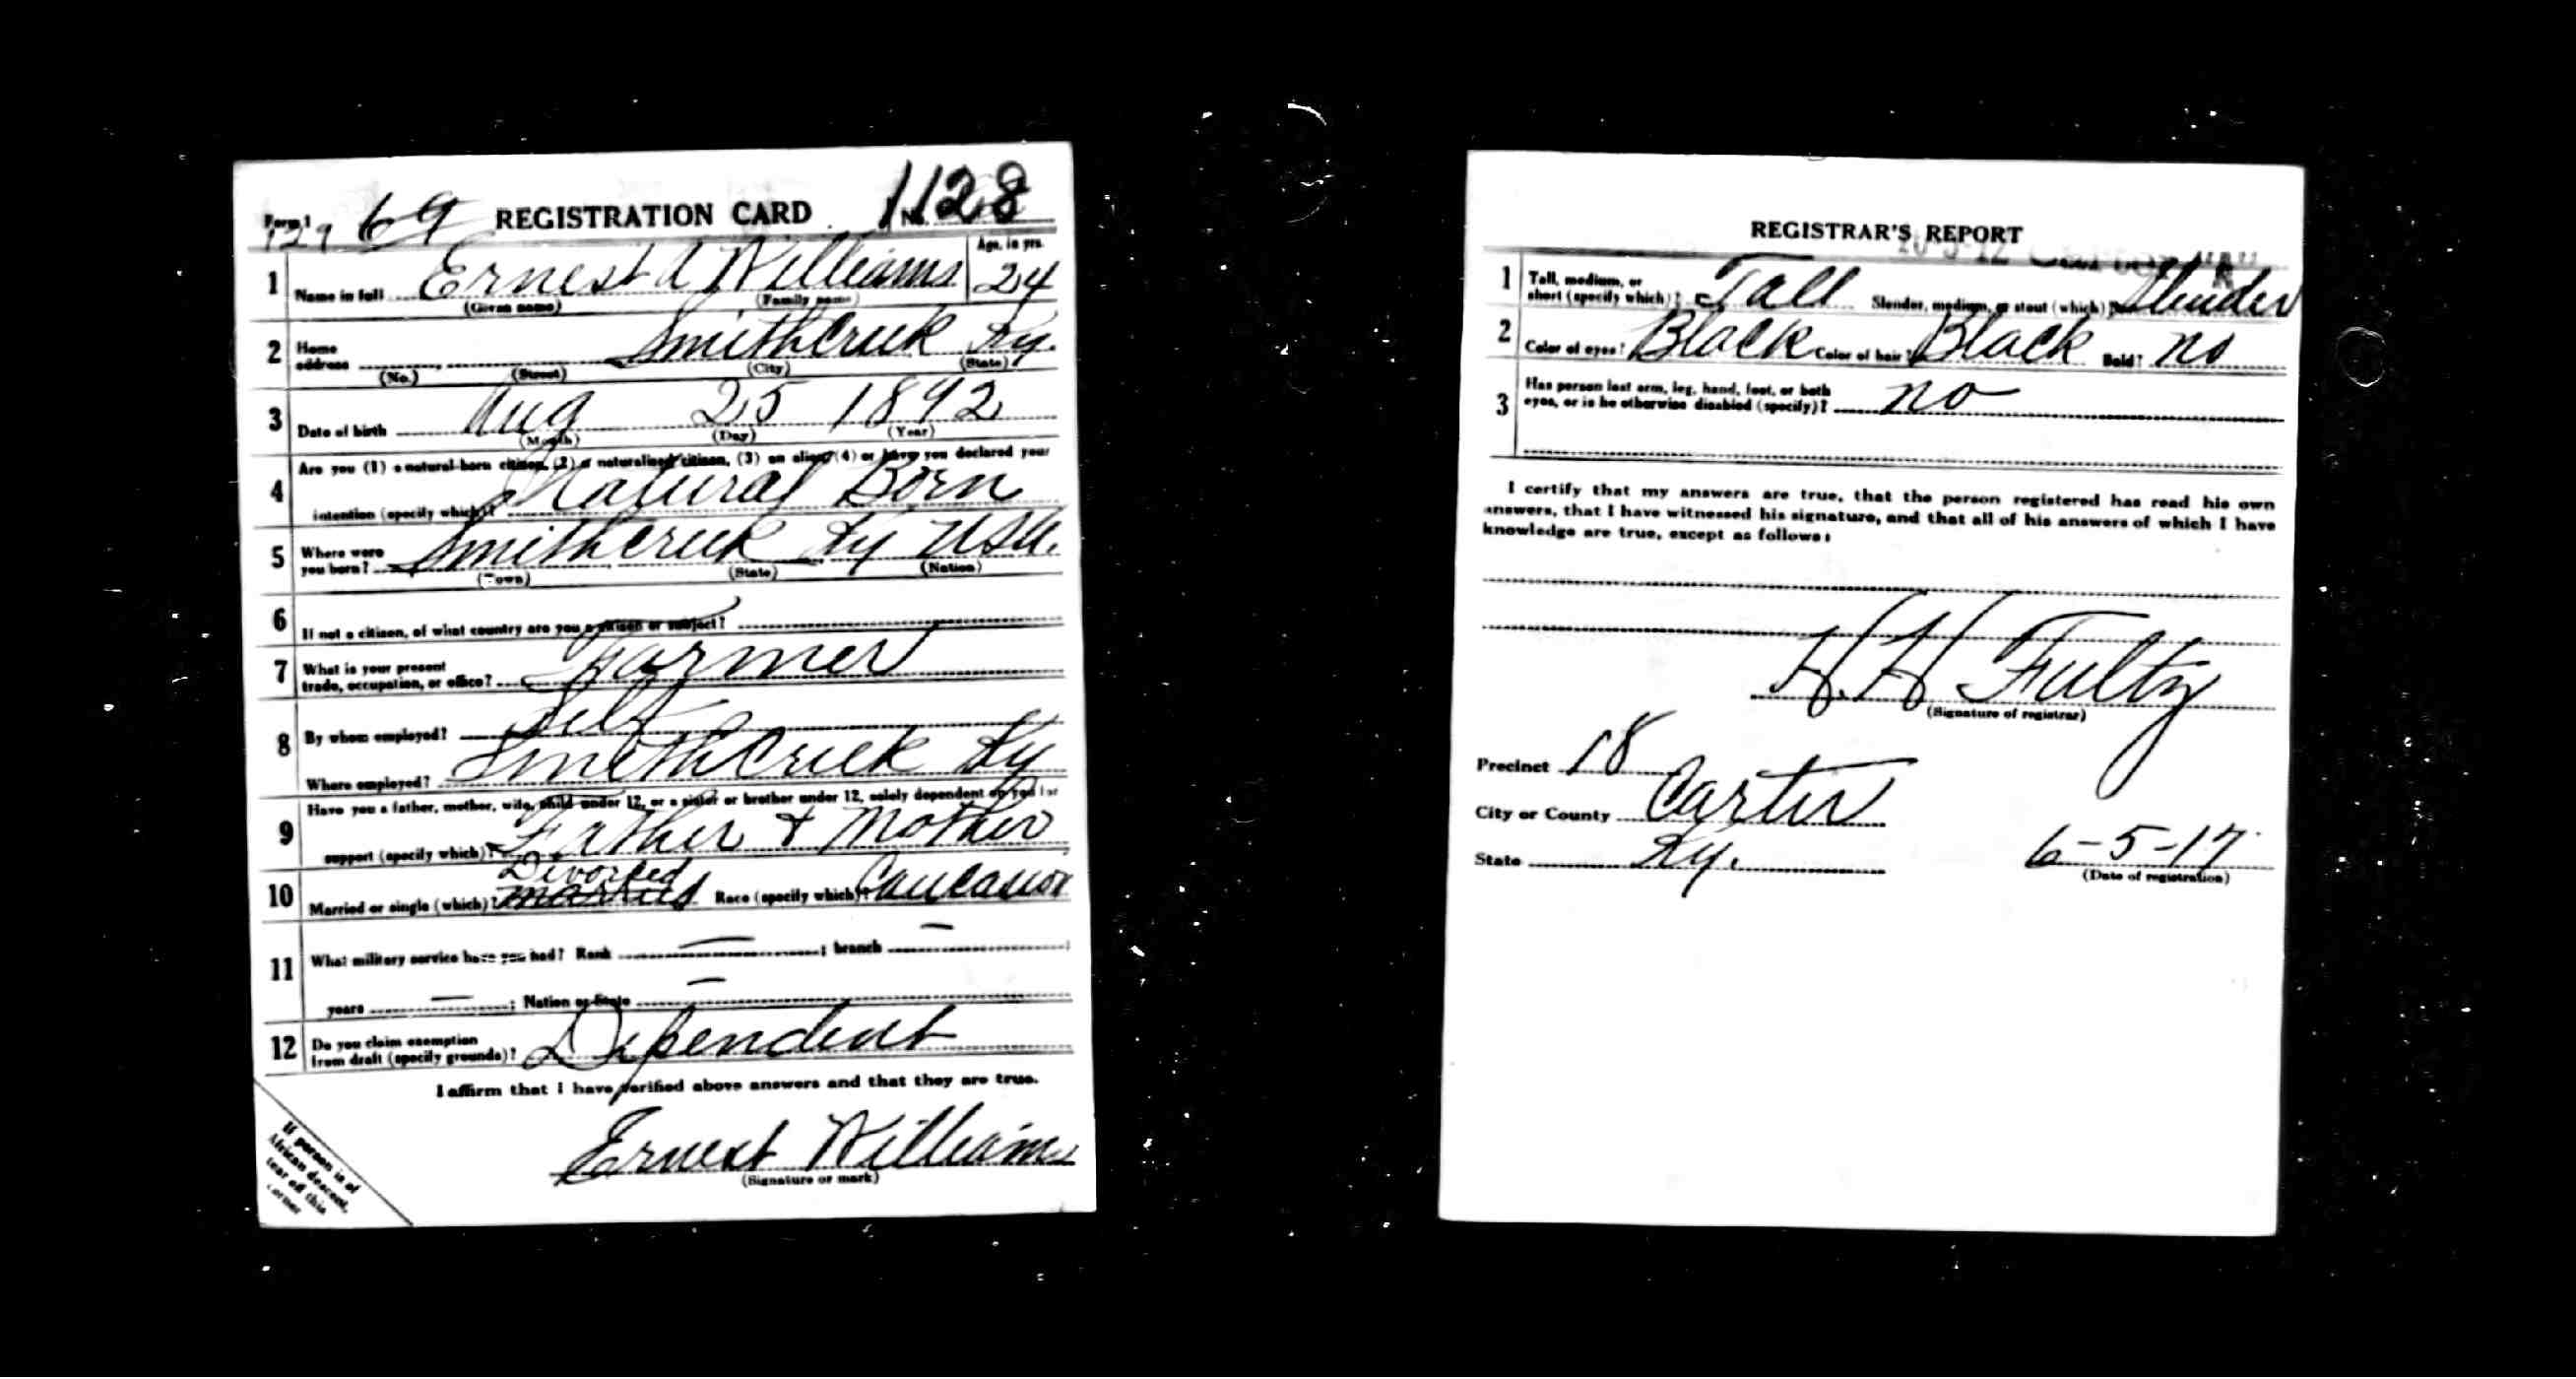 Form 1
129 69 REGISTRATION CARD No. 1128
1 Name in full Ernest A Williams Age, in yrs. 24
(Given name) (Family name)
2 Home address Smithcreek Ky.
(No.) (Street) (City) (State)
3 Date of birth Aug 25 1892
(Month) (Day) (Year)
4 Are you (1) a natural-born citizen, (2) a naturalized citizen, (3) an alien, (4) or have you declared your
intention (specify which)? Natural Born
5 Where were you born? Smithcreek Ky USA.
(Town) (State) (Nation)
6 If not a citizen, of what country are you a citizen or subject?
7 What is your present trade, occupation, or office? Farmer
8 By whom employed? Self
Where employed? Smithcreek Ky
9 Have you a father, mother, wife, child under 12, or a sister or brother under 12, solely dependent on you for
support (specify which)? Father & Mother
Divorced
10 Married or single (which)? married Race (specify which)? Caucasion
11 What military service have you had? Rank — ; branch — ;
years — ; Nation or State —
12 Do you claim exemption from draft (specify grounds)? Dependent
I affirm that I have verified above answers and that they are true.
Ernest Williams
(Signature or mark)
If person is of
African descent,
tear off this
corner
REGISTRAR'S REPORT
1 Tall, medium, or short (specify which)? Tall Slender, medium, or stout (which)? Slender
2 Color of eyes? Black Color of hair? Black Bald? no
3 Has person lost arm, leg, hand, foot, or both
eyes, or is he otherwise disabled (specify)? no
I certify that my answers are true, that the person registered has read his own
answers, that I have witnessed his signature, and that all of his answers of which I have
knowledge are true, except as follows:
H. H Fultz
(Signature of registrar)
Precinct 18
City or County Carter
State Ky. 6-5-17
(Date of registration)